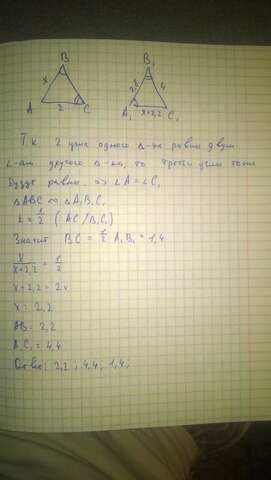 B
x
A
2
C
B₁
2,8
4
A₁
x+2,2
C₁
Тк 2 угла одного Δ-ка равны двум
∠-ам другого Δ-ка, то третьи углы тоже
будут равны => ∠A = ∠C₁
ΔABC ∞ ΔA₁B₁C₁
k = 1/2 (AC/B₁C₁)
Значит BC = 1/2 A₁B₁ = 1,4
x/x+2,2 = 1/2
x+2,2 = 2x
x = 2,2
AB = 2,2
A₁C₁ = 4,4
Ответ: 2,2; 4,4; 1,4;